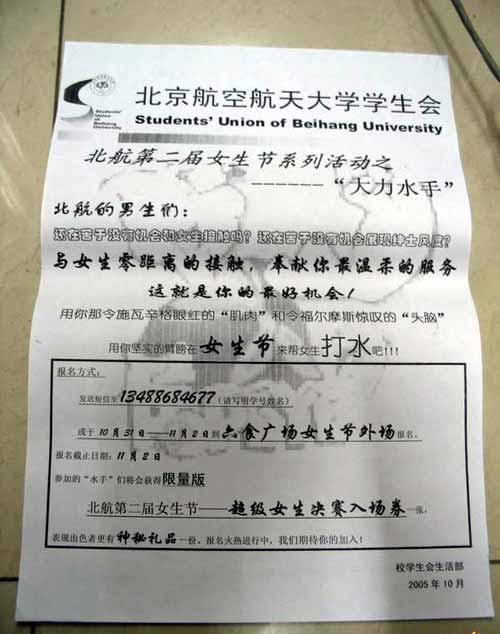 Students'
Union
of Beihang
University
北京航空航天大学学生会
Students' Union of Beihang University
北航第二届女生节系列活动之
------“大力水手”
北航的男生们：
还在苦于没有机会和女生接触吗？还在苦于没有机会展现绅士风度？
与女生零距离的接触，奉献你最温柔的服务
这就是你的最好机会！
用你那令施瓦辛格眼红的“肌肉”和令福尔摩斯惊叹的“头脑”
用你坚实的臂膀在女生节来帮女生打水吧!!!
报名方式：
发送短信至13488684677（请写明学号姓名）
或于10月31日——11月2日到六食广场女生节外场报名。
报名截止日期：11月2日
参加的“水手”们将会获得限量版
北航第二届女生节——超级女生决赛入场券一张，
表现出色者更有神秘礼品一份。报名火热进行中，我们期待你的加入！
校学生会生活部
2005年10月